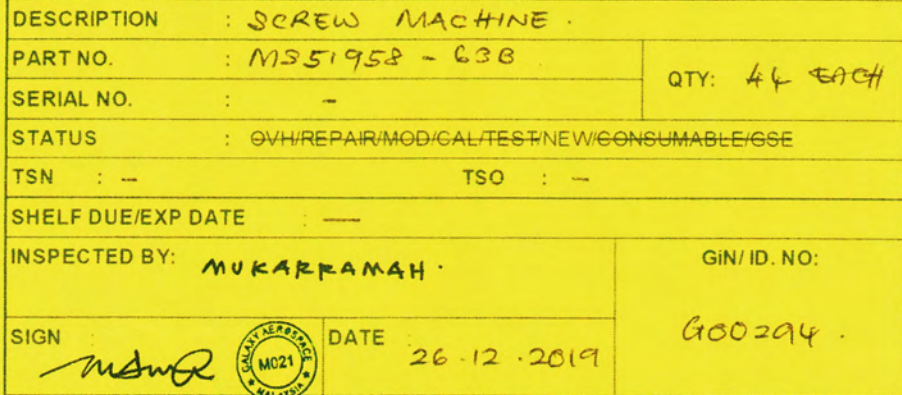 DESCRIPTION : SCREW MACHINE.
PART NO. : MS51958 - 63B
QTY: 44 EACH
SERIAL NO. : -
STATUS : OVH/REPAIR/MOD/CAL/TEST/NEW/CONSUMABLE/GSE
TSN : - TSO : -
SHELF DUE/EXP DATE : -
INSPECTED BY: MUKARRAMAH.
GiN/ ID. NO:
G00294.
SIGN :
GALAXY AEROSPACE
M021
★ MALAYSIA ★
DATE : 26.12.2019